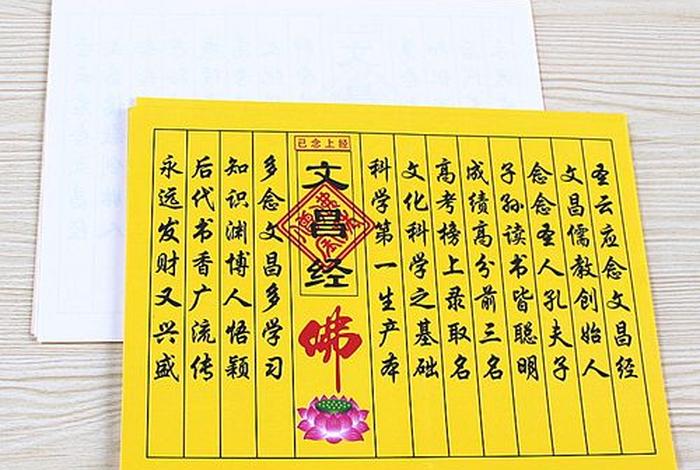 圣云应念文昌经
文昌儒教创始人
念念圣人孔夫子
子孙读书皆聪明
成绩高分前三名
高考榜上录取名
文化科学之基础
科学第一生产本
已念上经
文昌经
佛
多念文昌多学习
知识渊博人悟颖
后代书香广流传
永远发财又兴盛